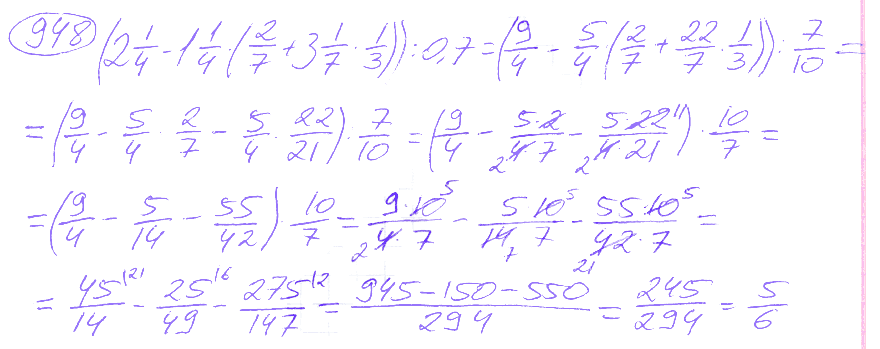 948 (2 1/4 - 1 1/4 · (2/7 + 3 1/7 · 1/3)) : 0,7 = (9/4 - 5/4 (2/7 + 22/7 · 1/3)) : 7/10 =
= (9/4 - 5/4 · 2/7 - 5/4 · 22/21) : 7/10 = (9/4 - 5·2/4·7 2 - 5·22 11/4·21 2) · 10/7 =
= (9/4 - 5/14 - 55/42) · 10/7 = 9·10 5/4·7 2 - 5·10 5/14·7 7 - 55·10 5/42·7 21 =
= 45/14 21 - 25/49 6 - 275/147 2 = 945-150-550/294 = 245/294 = 5/6